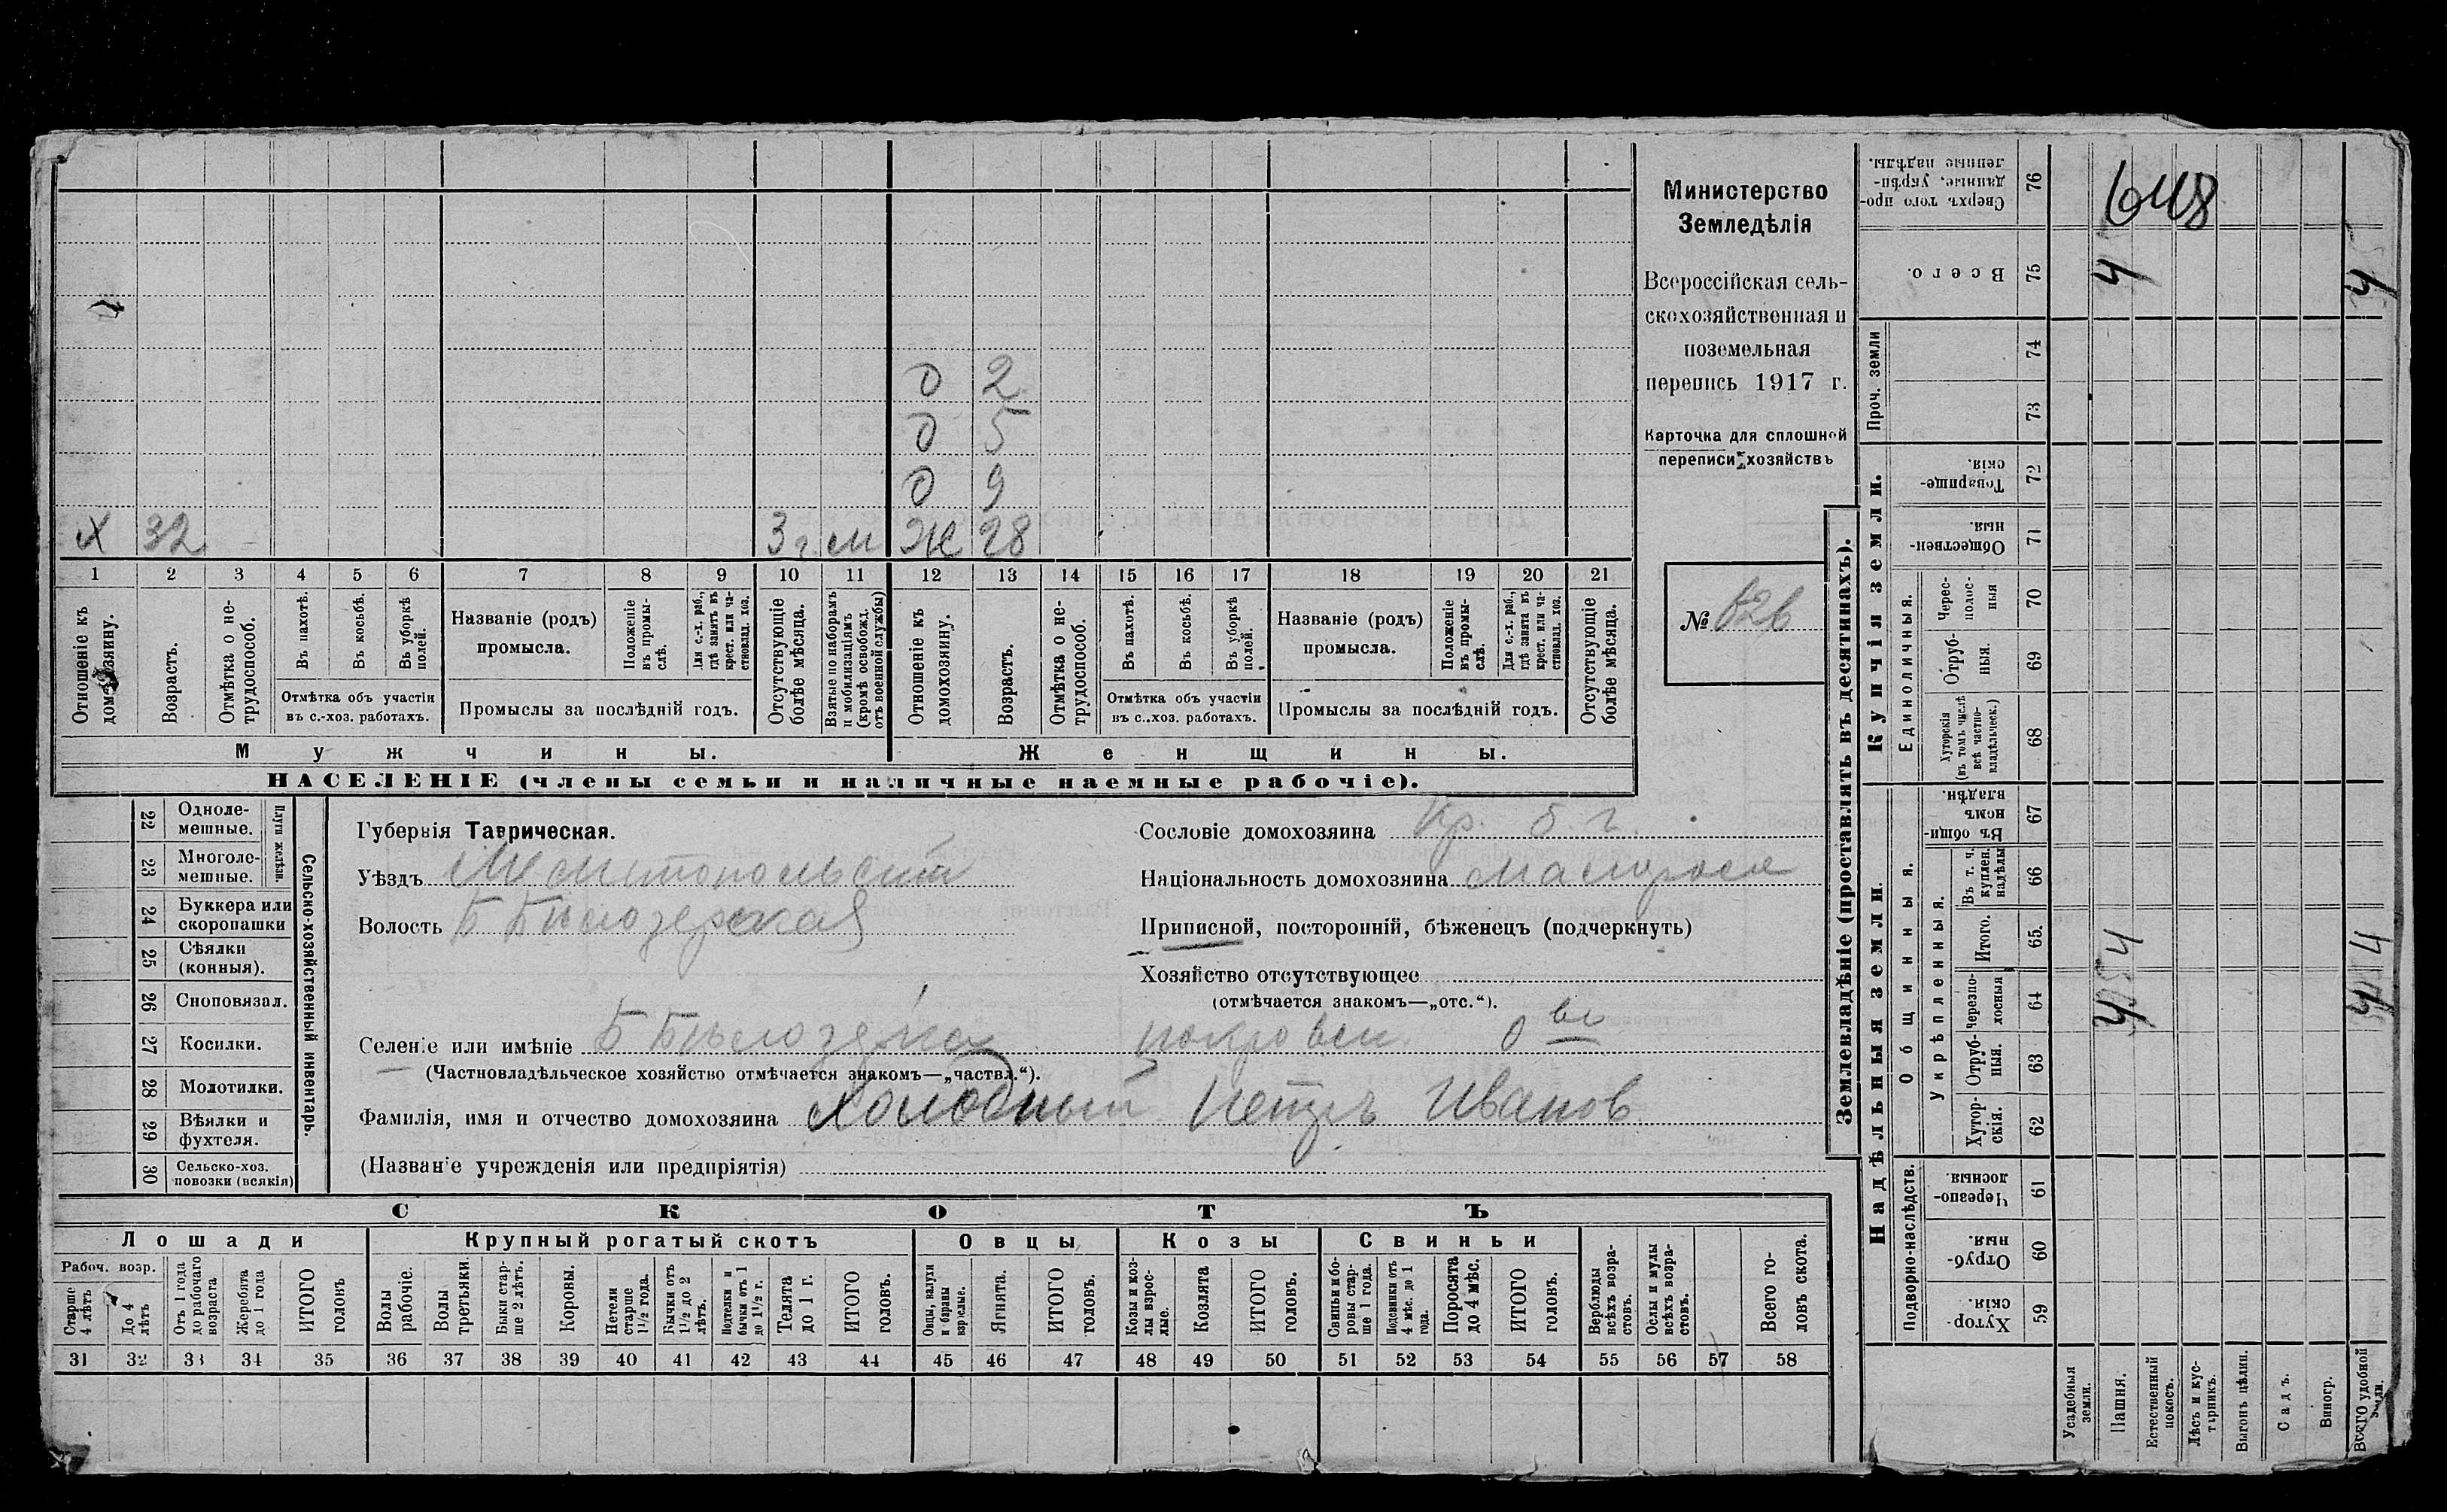 О 2
О 5
О 9
Х 32 3 г. м Ж 28
1 2 3 4 5 6 7 8 9 10 11 12 13 14 15 16 17 18 19 20 21
Отношеніе къ домохозяину.
Возрастъ.
Отмѣтка о не-
трудоспособ.
Въ пахотѣ.
Въ косьбѣ.
Въ уборкѣ
полей.
Отмѣтка объ участіи
въ с.-хоз. работахъ.
Названіе (родъ)
промысла.
Положеніе
въ промы-
слѣ.
Для с.-х. раб.,
гдѣ занятъ въ
крест. или ча-
стновлад. хоз.
Промыслы за послѣдній годъ.
Отсутствующіе
болѣе мѣсяца.
Взятые по наборамъ
и мобилизаціямъ
(кромѣ освобожд.
отъ военной службы)
Отношеніе къ
домохозяину.
Возрастъ.
Отмѣтка о не-
трудоспособ.
Въ пахотѣ.
Въ косьбѣ.
Въ уборкѣ
полей.
Отмѣтка объ участіи
въ с..хоз. работахъ.
Названіе (родъ)
промысла.
Положеніе
въ промы-
слѣ.
Для с.-х. раб.,
гдѣ занята въ
крест. или ча-
стновлад. хоз.
Промыслы за послѣдній годъ.
Отсутствующіе
болѣе мѣсяца.
Мужчины.
Женщины.
НАСЕЛЕНІЕ (члены семьи и наличные наемные рабочіе).
Министерство
Земледѣлія
Всероссійская сель-
скохозяйственная и
поземельная
перепись 1917 г.
Карточка для сплошной
переписи хозяйствъ
№
22 Одноле-
мешные.
23 Многоле-
мешные.
Плуги желѣзн.
24 Буккера или
скоропашки
25 Сѣялки
(конныя).
26 Сноповязал.
27 Косилки.
28 Молотилки.
29 Вѣялки и
фухтеля.
30 Сельско-хоз.
повозки (всякія)
Сельско-хозяйственный инвентарь.
Губернія Таврическая.
Уѣздъ Мелитопольскій
Волость Б Бѣлозерская
Селеніе или имѣніе Б Бѣлозерка покровск. о во
(Частновладѣльческое хозяйство отмѣчается знакомъ—„частвл.“).
Фамилія, имя и отчество домохозяина Холодный Петръ Иванов
(Названіе учрежденія или предпріятія)
Сословіе домохозяина Кр. б. г.
Національность домохозяина малоросс
Приписной, посторонній, бѣженецъ (подчеркнуть)
Хозяйство отсутствующее
(отмѣчается знакомъ—„отс.“).
СКОТЪ
Лошади Крупный рогатый скотъ Овцы Козы Свиньи
Рабоч. возр.
Старше
4 лѣтъ
До 4
лѣтъ
Отъ 1 года
до рабочаго
возраста
Жеребята
до 1 года
ИТОГО
головъ
Волы
рабочіе.
Волы
третьяки.
Быки стар-
ше 2 лѣтъ.
Коровы.
Нетели
старше
1½ года.
Бычки отъ
1½ до 2
лѣтъ.
Подтелки и
бычки отъ 1
до 1½ г.
Телята
до 1 г.
ИТОГО
головъ.
Овцы, валухи
и бараны
взрослые.
Ягнята.
ИТОГО
головъ.
Козы и коз-
лы взрос-
лые.
Козлята
ИТОГО
головъ.
Свиньи и бо-
ровы стар-
ше 1 года.
Подсвинки отъ
4 мѣс. до 1
года.
Поросята
до 4 мѣс.
ИТОГО
головъ.
Верблюды
всѣхъ возра-
стовъ.
Ослы и мулы
всѣхъ возра-
стовъ.
Всего го-
ловъ скота.
31 32 33 34 35 36 37 38 39 40 41 42 43 44 45 46 47 48 49 50 51 52 53 54 55 56 57 58
Землевладѣніе (проставлять въ десятинахъ).
Надѣльныя земли.
Купчія земли.
Проч. земли
Подворно-наслѣдств.
Общинныя.
Укрѣпленныя.
Единоличныя.
Сверхъ того про-
данные, укрѣп-
ленные надѣлы. 76 648
Всего. 75 4 4
74
73
Товарище-
скія. 72
Обществен-
ныя. 71
Черес-
полос-
ныя 70
Отруб-
ныя. 69
Хуторскія
(въ томъ числѣ
всѣ частно-
владѣльческ.) 68
Въ общин-
номъ
владѣн. 67
Въ т. ч.
куплен.
надѣлы 66
Итого. 65. 4 4
Черезпо-
лосныя 64 4 4
Отруб-
ныя. 63
Хутор-
скія. 62
Черезпо-
лосныя 61
Отруб-
ныя. 60
Хутор-
скія. 59
Усадебныя
земли.
Пашня.
Естественный
покосъ.
Лѣсъ и кус-
тарникъ.
Выгонъ цѣлин.
Садъ.
Виногр.
Всего удобной
земли.